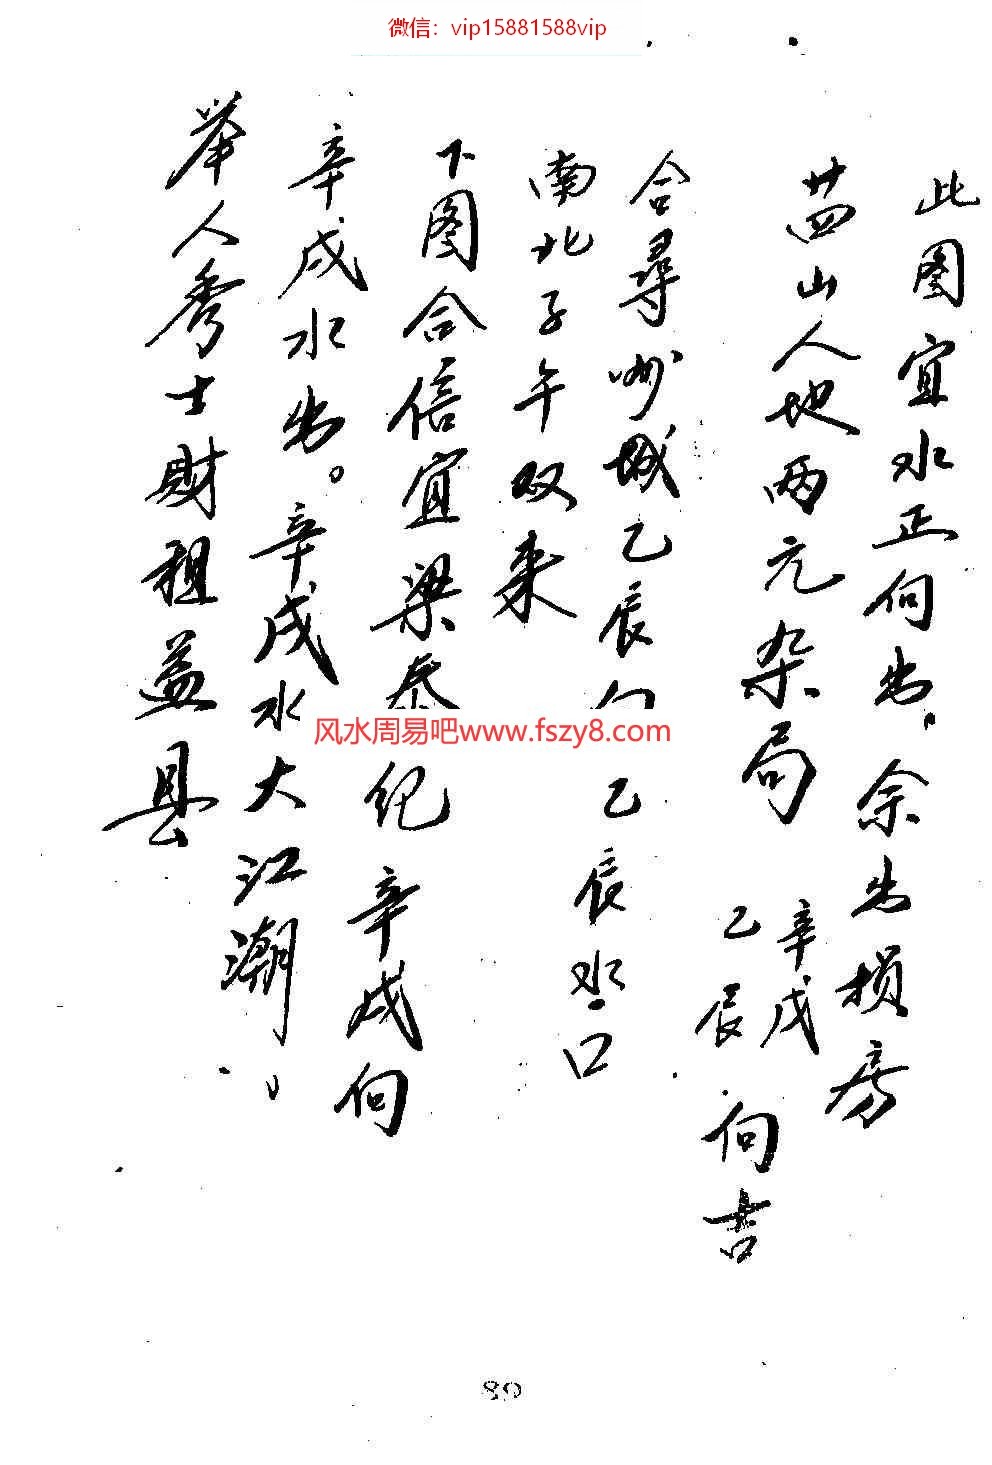 微信：vip15881588vip
此图宜水正向出，余出损房
廿四山人地两元杂局 辛戌 乙辰 向吉
合尋 城乙辰 乙辰水口
南北子午双来
下图合信宜梁 纪辛戌向
辛戌水出。辛戌水大江潮
举人秀士财租益县
风水周易吧www.fszy8.com
89